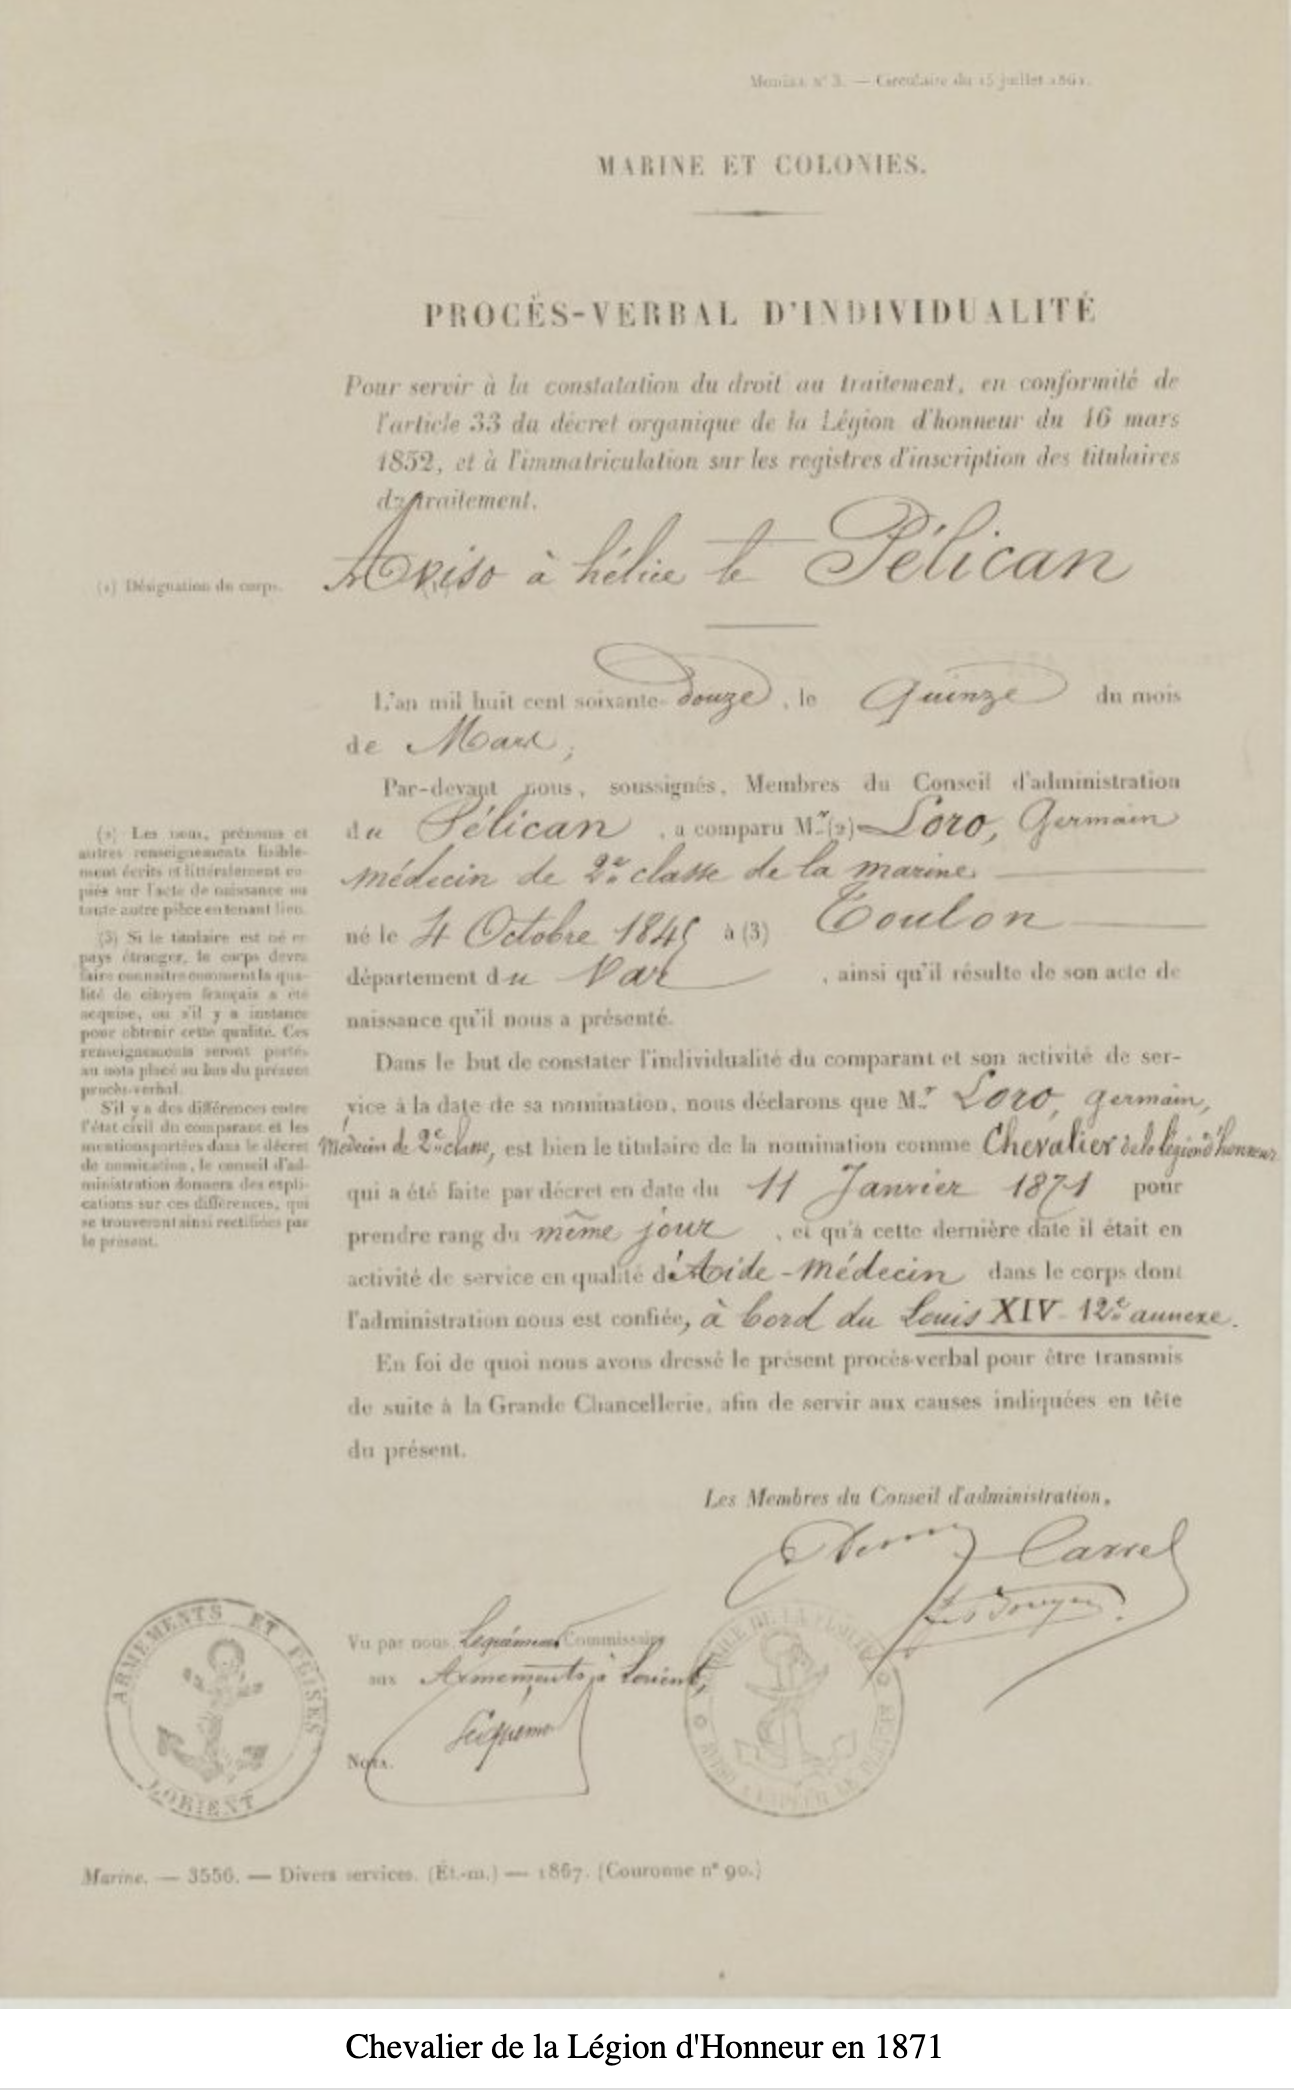 Modèle n° 3. — Circulaire du 15 juillet 1861.
MARINE ET COLONIES.
PROCÈS-VERBAL D'INDIVIDUALITÉ
Pour servir à la constatation du droit au traitement, en conformité de
l'article 33 du décret organique de la Légion d'honneur du 16 mars
1852, et à l'immatriculation sur les registres d'inscription des titulaires
de traitement.
(1) Désignation du corps.
Aviso à hélice le Pélican
L'an mil huit cent soixante-douze, le Quinze du mois
de Mars,
Par-devant nous, soussignés, Membres du Conseil d'administration
du Pélican, a comparu M.r (2) Loro, Germain
médecin de 2e classe de la marine
né le 4 Octobre 1845 à (3) Toulon
département du Var, ainsi qu'il résulte de son acte de
naissance qu'il nous a présenté.
(2) Les nom, prénoms et
autres renseignements lisible-
ment écrits et littéralement co-
piés sur l'acte de naissance ou
toute autre pièce en tenant lieu.
(3) Si le titulaire est né en
pays étranger, le corps devra
faire connaître comment la qua-
lité de citoyen français a été
acquise, ou s'il y a instance
pour obtenir cette qualité. Ces
renseignements seront portés
au nota placé au bas du présent
procès-verbal.
S'il y a des différences entre
l'état civil du comparant et les
mentions portées dans le décret
de nomination, le conseil d'ad-
ministration donnera des expli-
cations sur ces différences, qui
se trouveront ainsi rectifiées par
le présent.
Dans le but de constater l'individualité du comparant et son activité de ser-
vice à la date de sa nomination, nous déclarons que M.r Loro, Germain,
Médecin de 2e classe, est bien le titulaire de la nomination comme Chevalier de la légion d'honneur
qui a été faite par décret en date du 11 Janvier 1871 pour
prendre rang du même jour, et qu'à cette dernière date il était en
activité de service en qualité d'Aide-Médecin dans le corps dont
l'administration nous est confiée, à bord du Louis XIV 12e annexe.
En foi de quoi nous avons dressé le présent procès-verbal pour être transmis
de suite à la Grande Chancellerie, afin de servir aux causes indiquées en tête
du présent.
Les Membres du Conseil d'administration,
Carrel
Vu par nous Commissaire
aux Armements à Lorient,
Nota.
ARMEMENTS ET PRISES
LORIENT
Marine. — 3556. — Divers services. (Ét.-m.) — 1867. (Couronne n° 90.)
Chevalier de la Légion d'Honneur en 1871